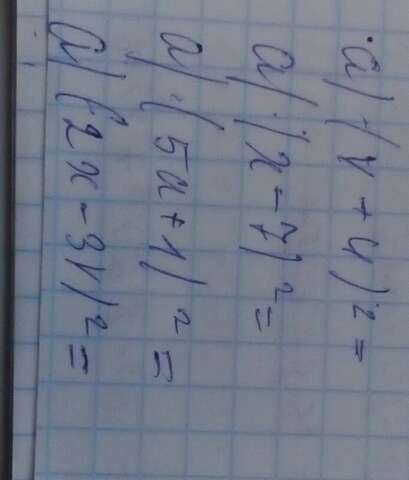 а) (y + 4)² =
а) (x - 7)² =
а) (5a + 1)² =
а) (2x - 3y)² =